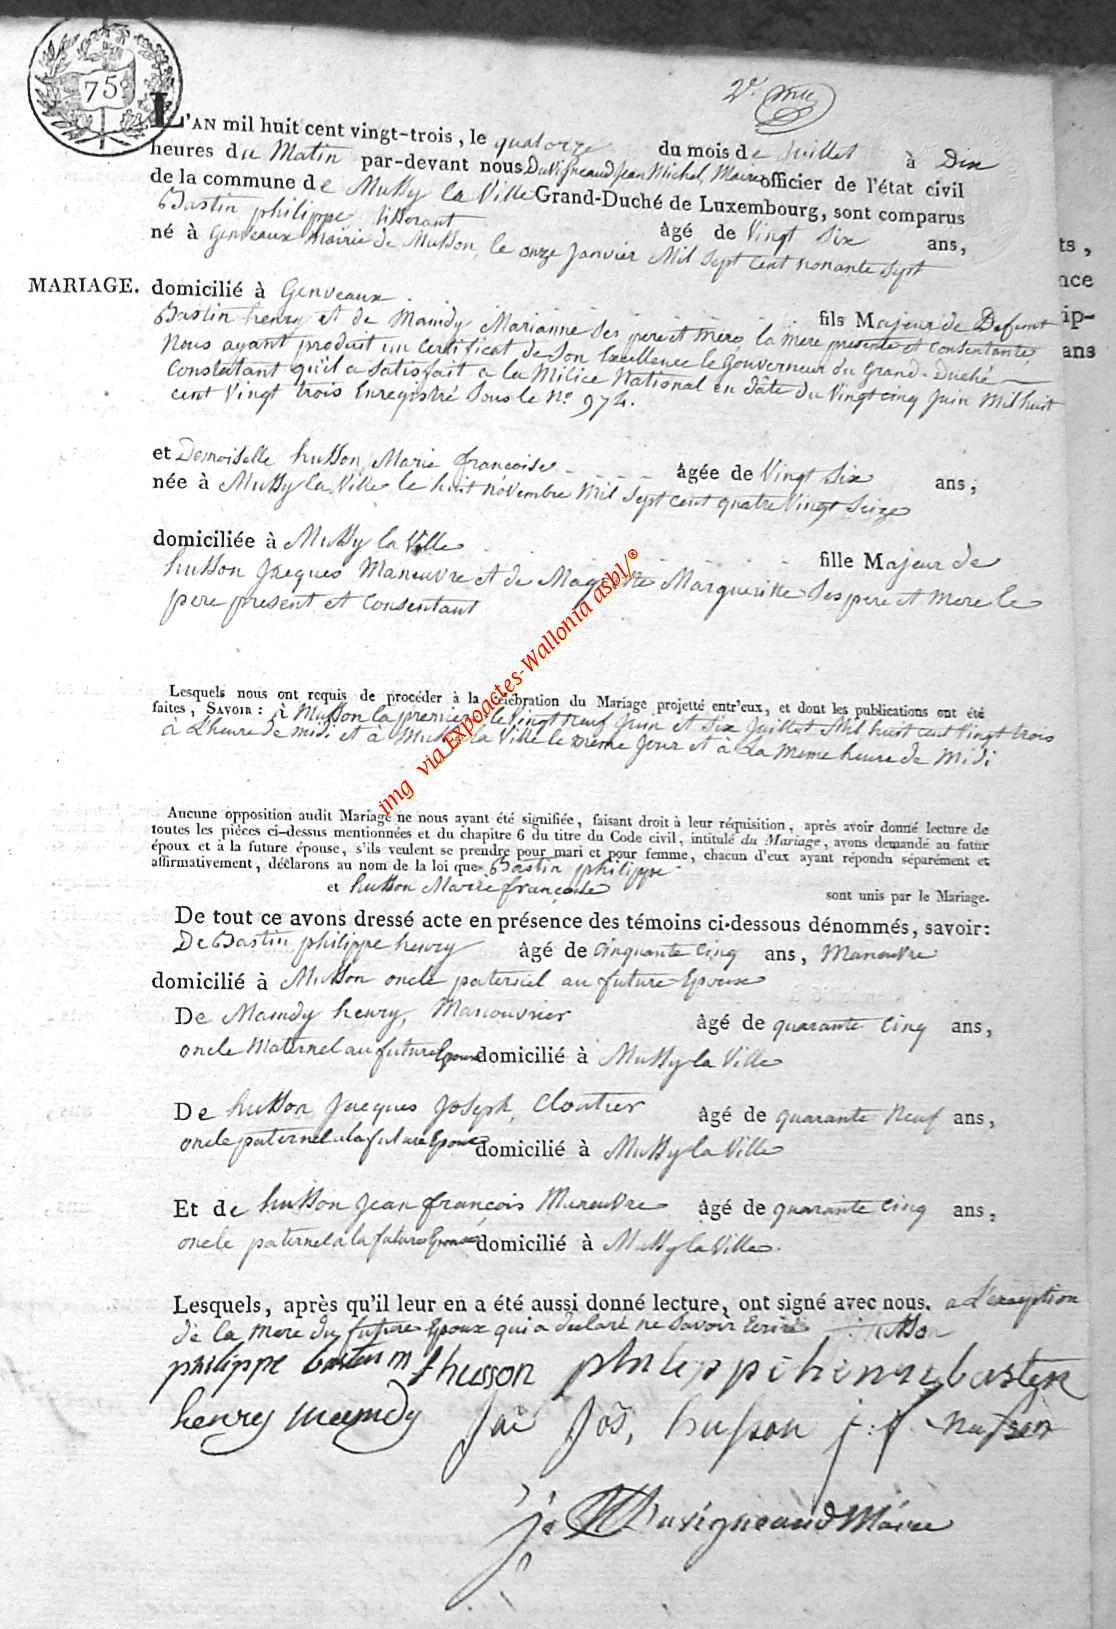 75c
2e. mu
L'AN mil huit cent vingt-trois, le quatorze du mois de Juillet à Dix
heures du Matin par-devant nous Duvigneaud Jean Michel, Maire officier de l'état civil
de la commune de Mussy la Ville Grand-Duché de Luxembourg, sont comparus
Bastin philippe tisserant âgé de Vingt Six ans,
né à Genveaux mairie de Musson, le onze Janvier Mil Sept Cent nonante Sept
MARIAGE. domicilié à Genveaux fils Majeur de Defunt
Bastin henry et de Maindy Marianne Ses pere et mere, la mere presente et Consentante,
Nous ayant produit un Certificat de Son Excellence le Gouverneur du Grand-Duché
Constatant qu'il a Satisfait a la Milice National en date du Vingt cinq Juin Mil huit
cent Vingt trois Enregistré Sous le No. 974.
et Demoiselle husson Marie françoise âgée de Vingt Six ans,
née à Mussy la Ville le huit novembre Mil Sept cent quatre Vingt Seize
domiciliée à Mussy la Ville fille Majeur de
husson Jacques Maneuvre et de Margueritte Ses pere et Mere le
pere present et Consentant
Lesquels nous ont requis de procéder à la célébration du Mariage projetté entr'eux, et dont les publications ont été
faites, SAVOIR: à Musson la premiere le Vingt neuf Juin et Six Juillet Mil huit cent Vingt trois
à L'heure de midi et à Mussy la Ville le meme Jour et à La meme heure de Midi
img via Expoactes-Wallonia asbl/®
Aucune opposition audit Mariage ne nous ayant été signifiée, faisant droit à leur réquisition, après avoir donné lecture de
toutes les pièces ci-dessus mentionnées et du chapitre 6 du titre du Code civil, intitulé du Mariage, avons demandé au futur
époux et à la future épouse, s'ils veulent se prendre pour mari et pour femme, chacun d'eux ayant répondu séparément et
affirmativement, déclarons au nom de la loi que Bastin philippe
et husson Marie françoise sont unis par le Mariage.
De tout ce avons dressé acte en présence des témoins ci-dessous dénommés, savoir:
De Bastin philippe henry âgé de Cinquante Cinq ans, Maneuvre
domicilié à Musson oncle paternel au future Epoux
De Maindy henry, Manouvrier âgé de quarante Cinq ans,
oncle Maternel au future Epoux domicilié à Mussy la Ville
De husson Jacques Joseph, Cloutier âgé de quarante Neuf ans,
oncle paternel a la future Epouse domicilié à Mussy la Ville
Et de husson Jean françois Maneuvre âgé de quarante Cinq ans,
oncle paternel à la future Epouse domicilié à Mussy la Ville.
Lesquels, après qu'il leur en a été aussi donné lecture, ont signé avec nous. a L'exception
de la mere du future Epoux qui a declaré ne Savoir Ecrire
philippe bastin husson philippe henri basten
henry maindy Jac Jos, husson j. f. husson
Duvigneaud Maire
ts,
nce
ip-
ans